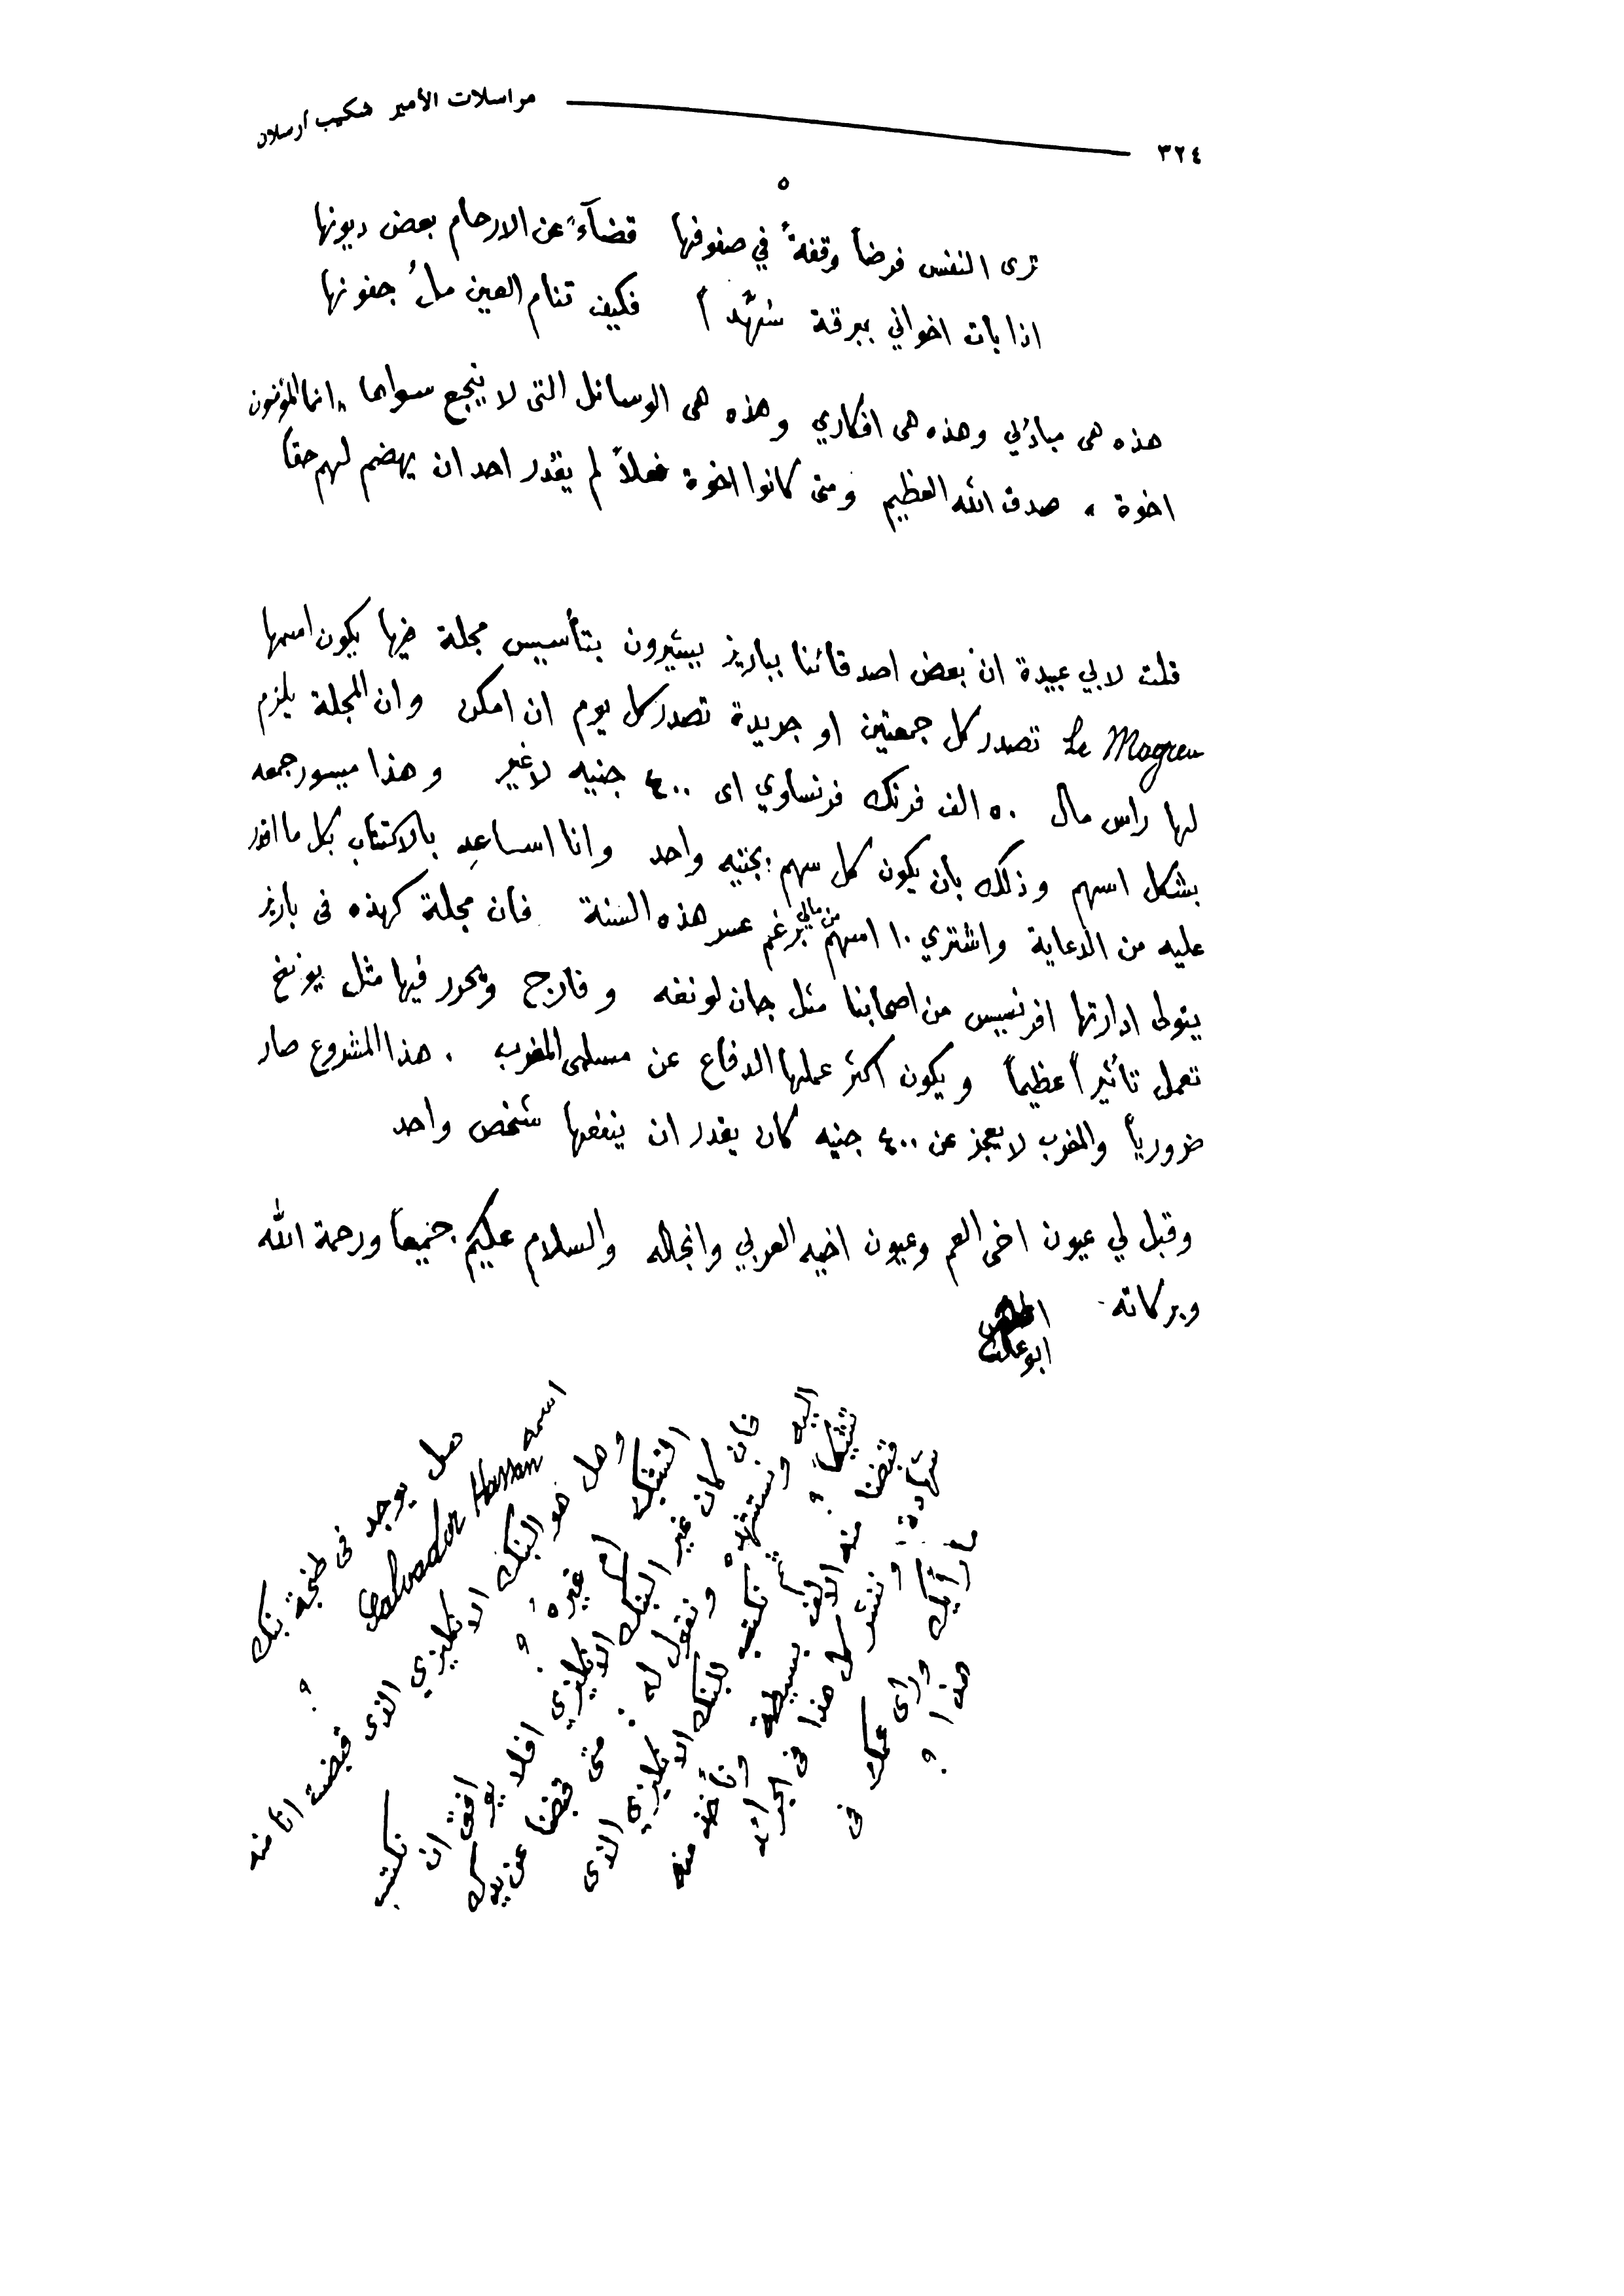 ٣٢٤ مراسلات الأمير شكيب أرسلان
٥
ترى النفس فرضاً وقفةً في صفوفها قضآءً عن الارحام بعض ديونها
اذا بات اخواني ببرقة سُهَّداً فكيف تنام العين ملُ جفونها
هذه هى مبادئي وهذه هى افكاري وهذه هى الوسائل التى لا ينجع سواها "انما المؤمنون
اخوة" صدق الله العظيم ومتى كانوا اخوة فعلاً لم يقدر احد ان يهضم لهم حقاً
قلت لابي عبيدة ان بعض اصدقائنا بباريز يشيرون بتأسيس مجلة فيها يكون اسمها
Le Magreb تصدر كل جمعتين او جريدة تصدر كل يوم ان امكن وان المجلة يلزم
لها راس مال ٥٠ الف فرنك فرنساوي اى ٤٠٠ جنيه لا غير وهذا ميسور جمعه
بشكل اسهم وذلك بأن يكون كل سهم بجنيه واحد وانا اساعد بالاكتتاب بكل ما اقدر
عليه من الدعاية واشتري ١٠ اسهم من مالي برغم عسر هذه السنة فان مجلة كهذه فى باريز
يتولى ادارتها افرنسيس من اصحابنا مثل جان لونغه و فارج ويحرر فيها مثل يونغ
تعمل تأثيراً عظيماً ويكون اكثر عملها الدفاع عن مسلمى المغرب . هذا المشروع صار
ضرورياً والمغرب لا يعجز عن ٤٠٠ جنيه كان يقدر ان ينفقها شخص واحد
وقبل لي عيون اخى العم وعيون اخيه العربي وانجاله والسلام عليكم جميعاً ورحمة الله
وبركاته
هل يوجد فى طنجة بنك
اسمه Salvador Hassan ؟
وهل هو البنك الانكليزي الذى قبضت انا منه
التشك ام غيره ؟
فان كان غير البنك الانكليزي افلا يوافق ان نكتب
اليه ونستشهده ونقول له : متى قبضنا عن يدك
شيئاً ؟ ثم نكتب للبنك الانكليزي الذى
قبضنا منه الالف بسيطة ونأخذ منه
شهادة وننشر كل هذا فى الجرائد
ما رأيك ورأى عمك فى
هذا ؟